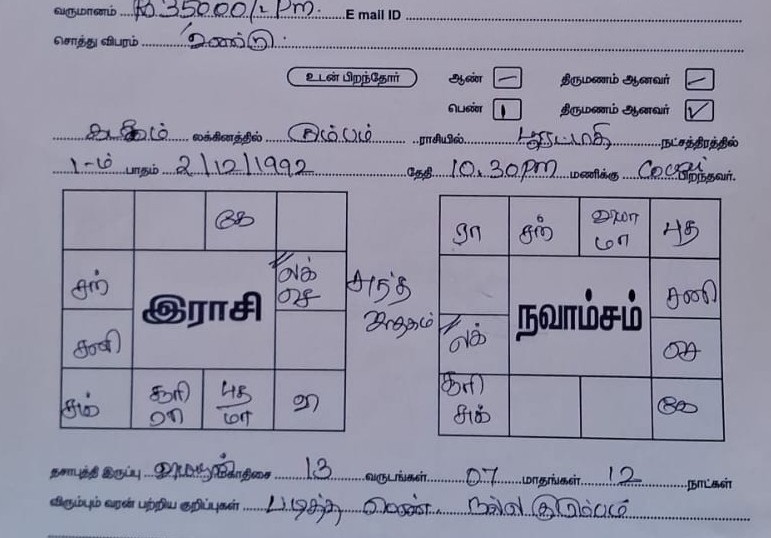 வருமானம் ரூ 35000/- Pm. E mail ID
சொத்து விபரம் உண்டு
உடன் பிறந்தோர் ஆண் — திருமணம் ஆனவர் —
பெண் 1 திருமணம் ஆனவர் ✓
கடகம் லக்கினத்தில் கும்பம் ராசியில் பூரட்டாதி நட்சத்திரத்தில்
1-ம் பாதம் 2/12/1992 தேதி 10.30 PM மணிக்கு Covai பிறந்தவர்.
கே
சந் லக் செ
இராசி
சனி
சுக் சூரி ரா புத மா வி
சுத்த ஜாதகம்
ரா சந் வியா மா புத
சனி
நவாம்சம்
லக் செ
சூரி சுக் கே
தசாபுத்தி இருப்பு வியாழன் மகாதிசை 13 வருடங்கள் 07 மாதங்கள் 12 நாட்கள்
விரும்பும் வரன் பற்றிய குறிப்புகள் படித்த பெண். நல்ல குடும்பம்